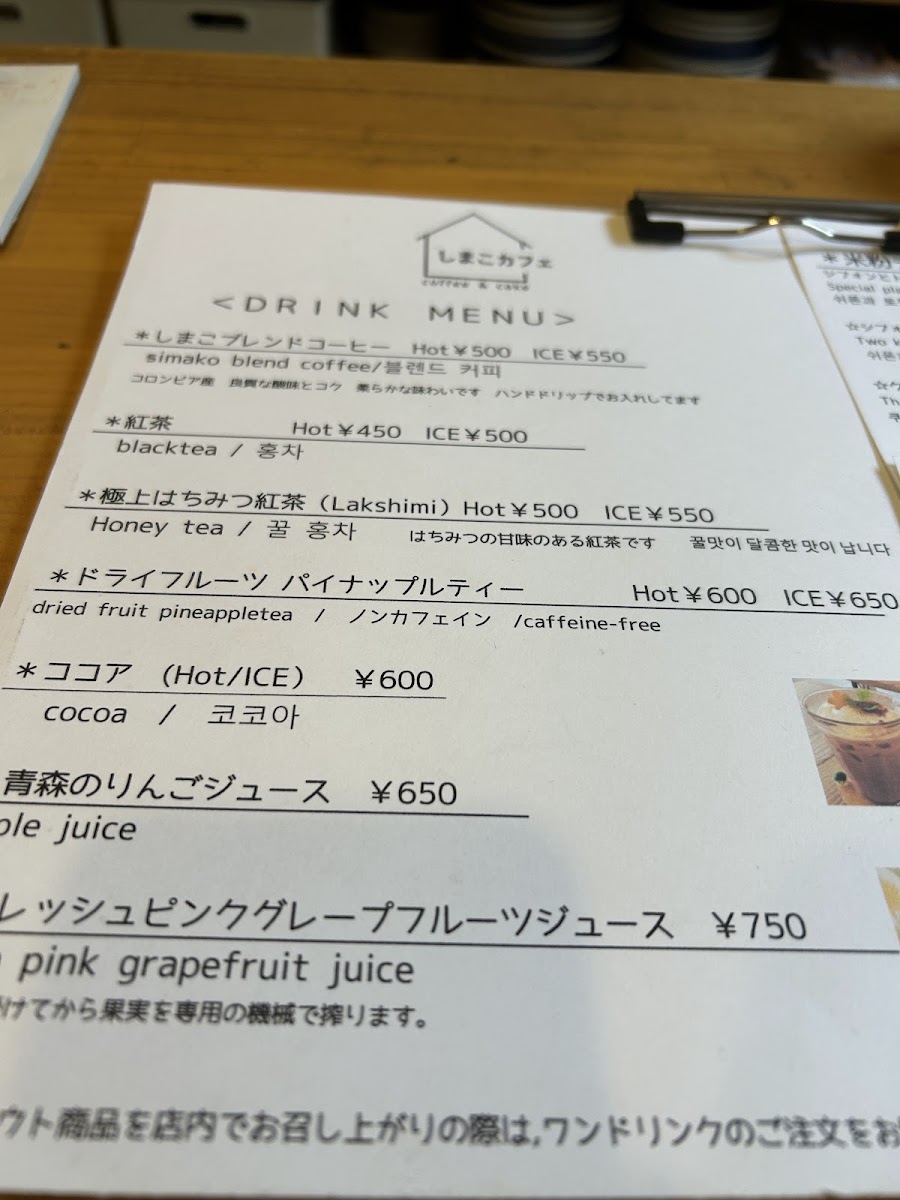 しまこカフェ
coffee & cake
<DRINK MENU>
*しまこブレンドコーヒー Hot¥500 ICE¥550
simako blend coffee/블렌드 커피
コロンビア産 良質な酸味とコク 柔らかな味わいです ハンドドリップでお入れしてます
*紅茶 Hot¥450 ICE¥500
blacktea / 홍차
*極上はちみつ紅茶（Lakshimi）Hot¥500 ICE¥550
Honey tea / 꿀 홍차 はちみつの甘味のある紅茶です 꿀맛이 달콤한 맛이 납니다
*ドライフルーツ パイナップルティー Hot¥600 ICE¥650
dried fruit pineappletea / ノンカフェイン /caffeine-free
*ココア （Hot/ICE） ¥600
cocoa / 코코아
青森のりんごジュース ¥650
ple juice
レッシュピンクグレープフルーツジュース ¥750
pink grapefruit juice
けてから果実を専用の機械で搾ります。
ウト商品を店内でお召し上がりの際は,ワンドリンクのご注文をお
*米粉
Special pla
☆シフォ
Two k
Th